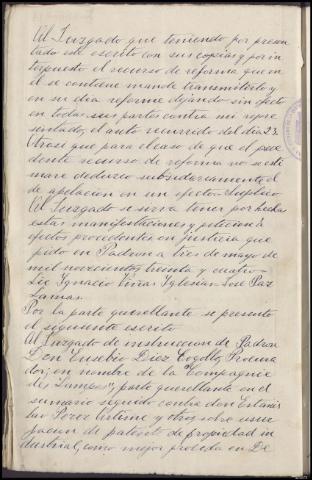 Al Juzgado que teniendo por presen
tado este escrito con sus copias y por in
terpuesto el recurso de reforma que en
el se contiene mande transmitirlo y
en su dia reforme dejando sin efecto
en todas sus partes contra mi repre
sentado, el auto recurrido del dia 23.
Otrosi que para el caso de que el prece
dente recurso de reforma no se esti
mare deduzco subsidiariamente el
de apelación en un efecto = Suplico
Al Juzgado se sirva tener por hechas
estas manifestaciones y petición a
efectos procedentes en justicia que
pido en Padron a tres de mayo de
mil novecientos treinta y cuatro =
Lic Ignacio Viñas Iglesias = José Paz
Lamas =
Por la parte querellante se presentó
el siguiente escrito
Al Juzgado de instruccion de Padron
Don Eusebio Diez Cogollo, Procura
dor, en nombre de la "Compagnie
des Lampes", parte querellante en el
sumario seguido contra don Estanis
lao Perez Artime y otros sobre usur
pacion de patente de propiedad in
dustrial, como mejor proceda en De